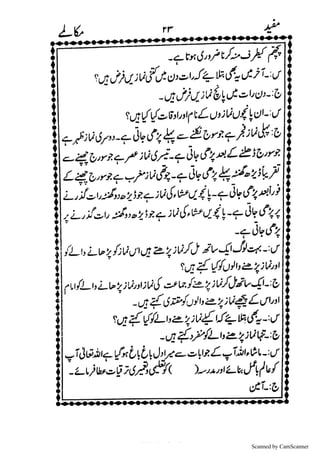 مفید ۲۳ مکالمے
پچھم کیطرف منہ کرنا ضروری ہونا ہے۔
س:۔ آخر میں یہ بھی بتلائیے کہ رات دن میں کتنی نمازیں فرض ہیں؟
ج:۔ دن رات میں پانچ نمازیں فرض ہیں۔
س:۔ ان پانچوں نمازوں کے نام اور اوقات کیا کیا ہیں؟
ج:۔ پہلی نماز فجر ہے جو سورج نکلنے سے پہلے پڑھی جاتی ہے۔ دوسری نماز ظہر ہے
جو سورج ڈھلنے کے بعد پڑھی جاتی ہے۔ تیسری نماز عصر ہے جو سورج چھپنے سے
تقریباً ڈیڑھ گھنٹہ پہلے پڑھی جاتی ہے۔ چوتھی نماز مغرب ہے جو سورج چھپنے کے
فوراً بعد پڑھی جاتی ہے۔ پانچویں عشاء کی نماز ہے جو ڈیڑھ دو گھنٹہ رات گذرنے
پر پڑھی جاتی ہے۔ پانچویں عشاء کی نماز ہے جو ڈیڑھ دو گھنٹہ رات گذرنے پر
پڑھی جاتی ہے۔
س:۔ بہت لوگ ایک ساتھ مل کر نماز پڑھتے ہیں اس نماز کو پڑھانے والے کو
اور نماز پڑھنے والوں کو کیا کہتے ہیں؟
ج:۔ ایک ساتھ مل کر نماز پڑھنے کو جماعت کی نماز اور نماز پڑھانے والے کو امام
اور اس کے پیچھے نماز پڑھنے والوں کو مقتدی کہتے ہیں۔
س:۔ یہ بھی بتلائیے کہ اکیلے نماز پڑھنے والے کو کیا کہتے ہیں؟
ج:۔ تنہا نماز پڑھنے والے کو منفرد کہتے ہیں۔
س:۔ ماشاء اللہ آپ کے جوابات سے میرا دل باغ باغ ہو گیا ہے اللہ تعالیٰ آپ
کو عالم باعمل بنائے اور مدرسہ ( ) کو تعلیمی و تعمیری ترقیات عطا فرمائے۔
ج:۔ آمین
Scanned by CamScanner